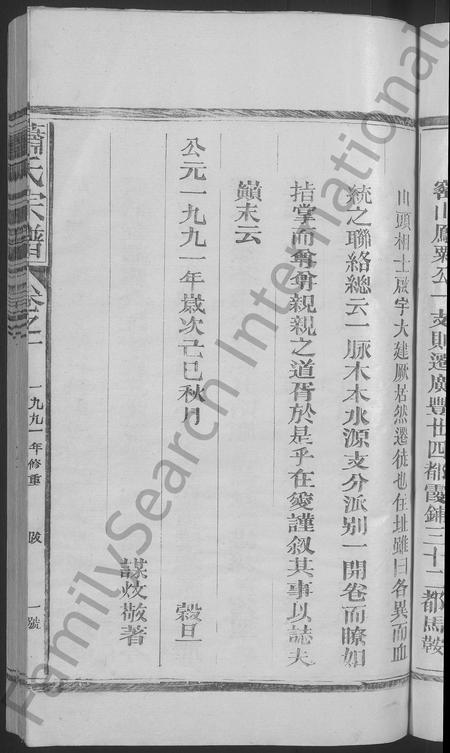 鞍山鳳粟公一支則遷廣豐廿四都霞鋪三十二都馬鞍
山頭相土啟宇大建厥居然遷徙也住址雖曰各異而血
統之聯絡總云一脉木本水源支分派别一開卷而瞭如
指掌而尊尊親親之道胥於是乎在爰謹叙其事以誌夫
巔末云
公元一九九一年歲次己巳秋月 穀旦
謀炆敬著
蕭氏宗譜 卷之一 一九九一年修重 跋 一號
FamilySearch International